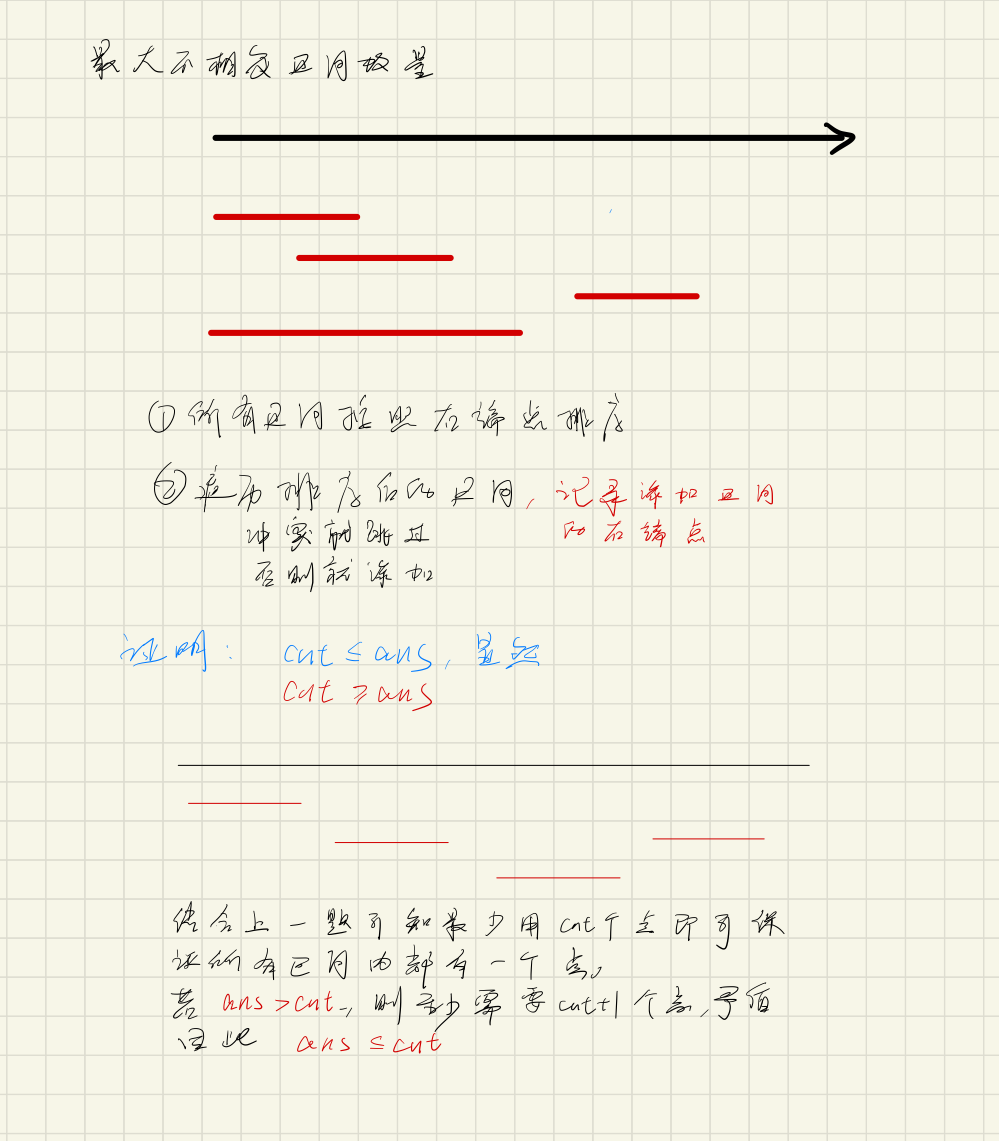 最大不相交区间数量
① 所有区间按照右端点排序
② 遍历排序后的区间, 记录添加区间
的右端点
冲突就跳过
否则就添加
证明: cnt ≤ ans, 显然
cnt ≥ ans
结合上一题可知最少用cnt个点即可保
证所有区间内都有一个点。
若 ans > cnt, 则至少需要cnt+1个点, 矛盾
因此 ans ≤ cnt